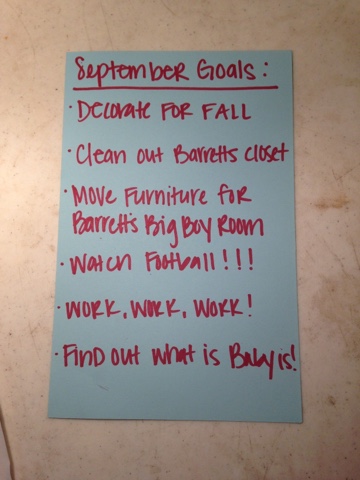 September Goals:
· Decorate for Fall
· Clean out Barretts Closet
· Move Furniture for
Barrett's Big Boy Room
· Watch Football!!!
· Work, Work, Work!
· Find out what is Baby is!